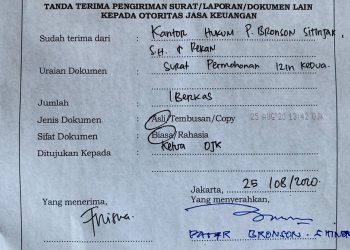 TANDA TERIMA PENGIRIMAN SURAT/LAPORAN/DOKUMEN LAIN
KEPADA OTORITAS JASA KEUANGAN
Sudah terima dari : Kantor HUKUM P. BRONSON SITINJAK,
S.H. & Rekan
Uraian Dokumen : Surat Permohonan Izin Kedua.
Jumlah : 1 Berkas
Jenis Dokumen : Asli/Tembusan/Copy 25 AUG '20 13:42 OJK
Sifat Dokumen : Biasa/Rahasia
Ditujukan Kepada : Ketua OJK
Jakarta, 25/08/2020.
Yang menerima, Yang menyerahkan,
BRONSON. SITINJAK